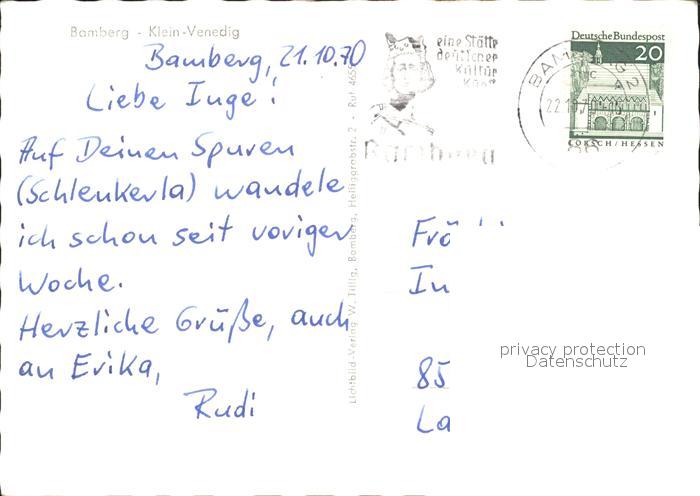 Bamberg - Klein-Venedig
Bamberg, 21.10.70
Liebe Inge!
Auf Deinen Spuren
(Schlenkerla) wandele
ich schon seit voriger
Woche.
Herzliche Grüße, auch
an Erika,
Rudi
Lichtbild-Verlag W. Tillig, Bamberg, Heiliggrabstr. 2 - Ruf
eine Stätte
deutscher
Kultur
Bamberg
BAMBERG 2
22.10.70
86
Deutsche Bundespost
20
LORSCH/HESSEN
Frö
In
85
La
privacy protection
Datenschutz